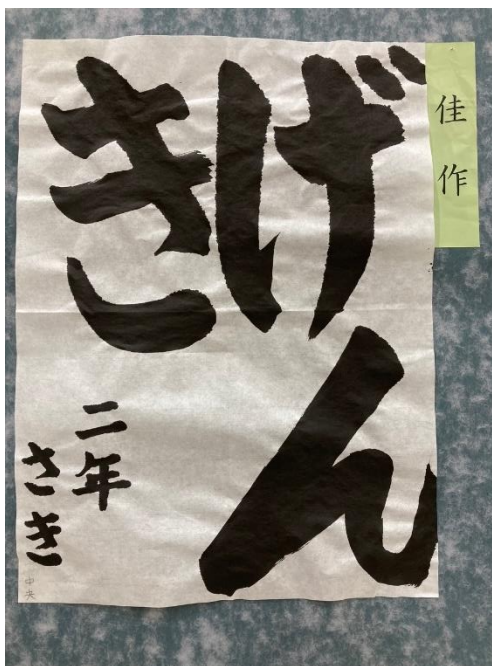 佳作
げん
き
二年
さき
中央